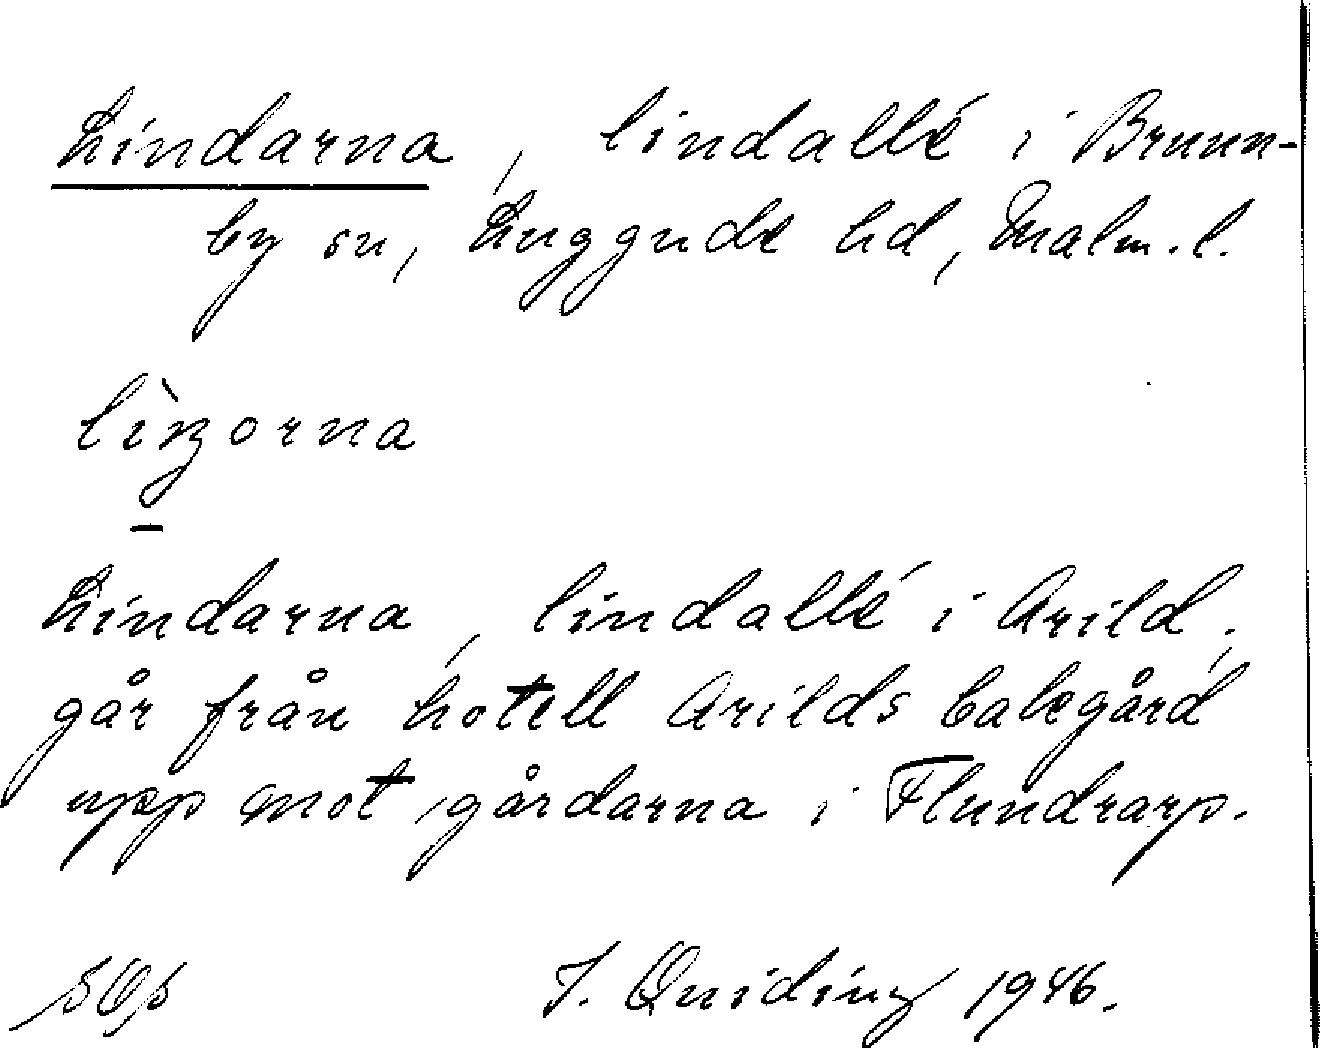 Lindarna, lindallé i Brunn-
by sn, Luggude hd, Malm.l.
Lindarna, lindallé i Arild,
går från hotell Arilds bakgård
upp mot gårdarna i Flundrarp.
J. Quiding 1946.